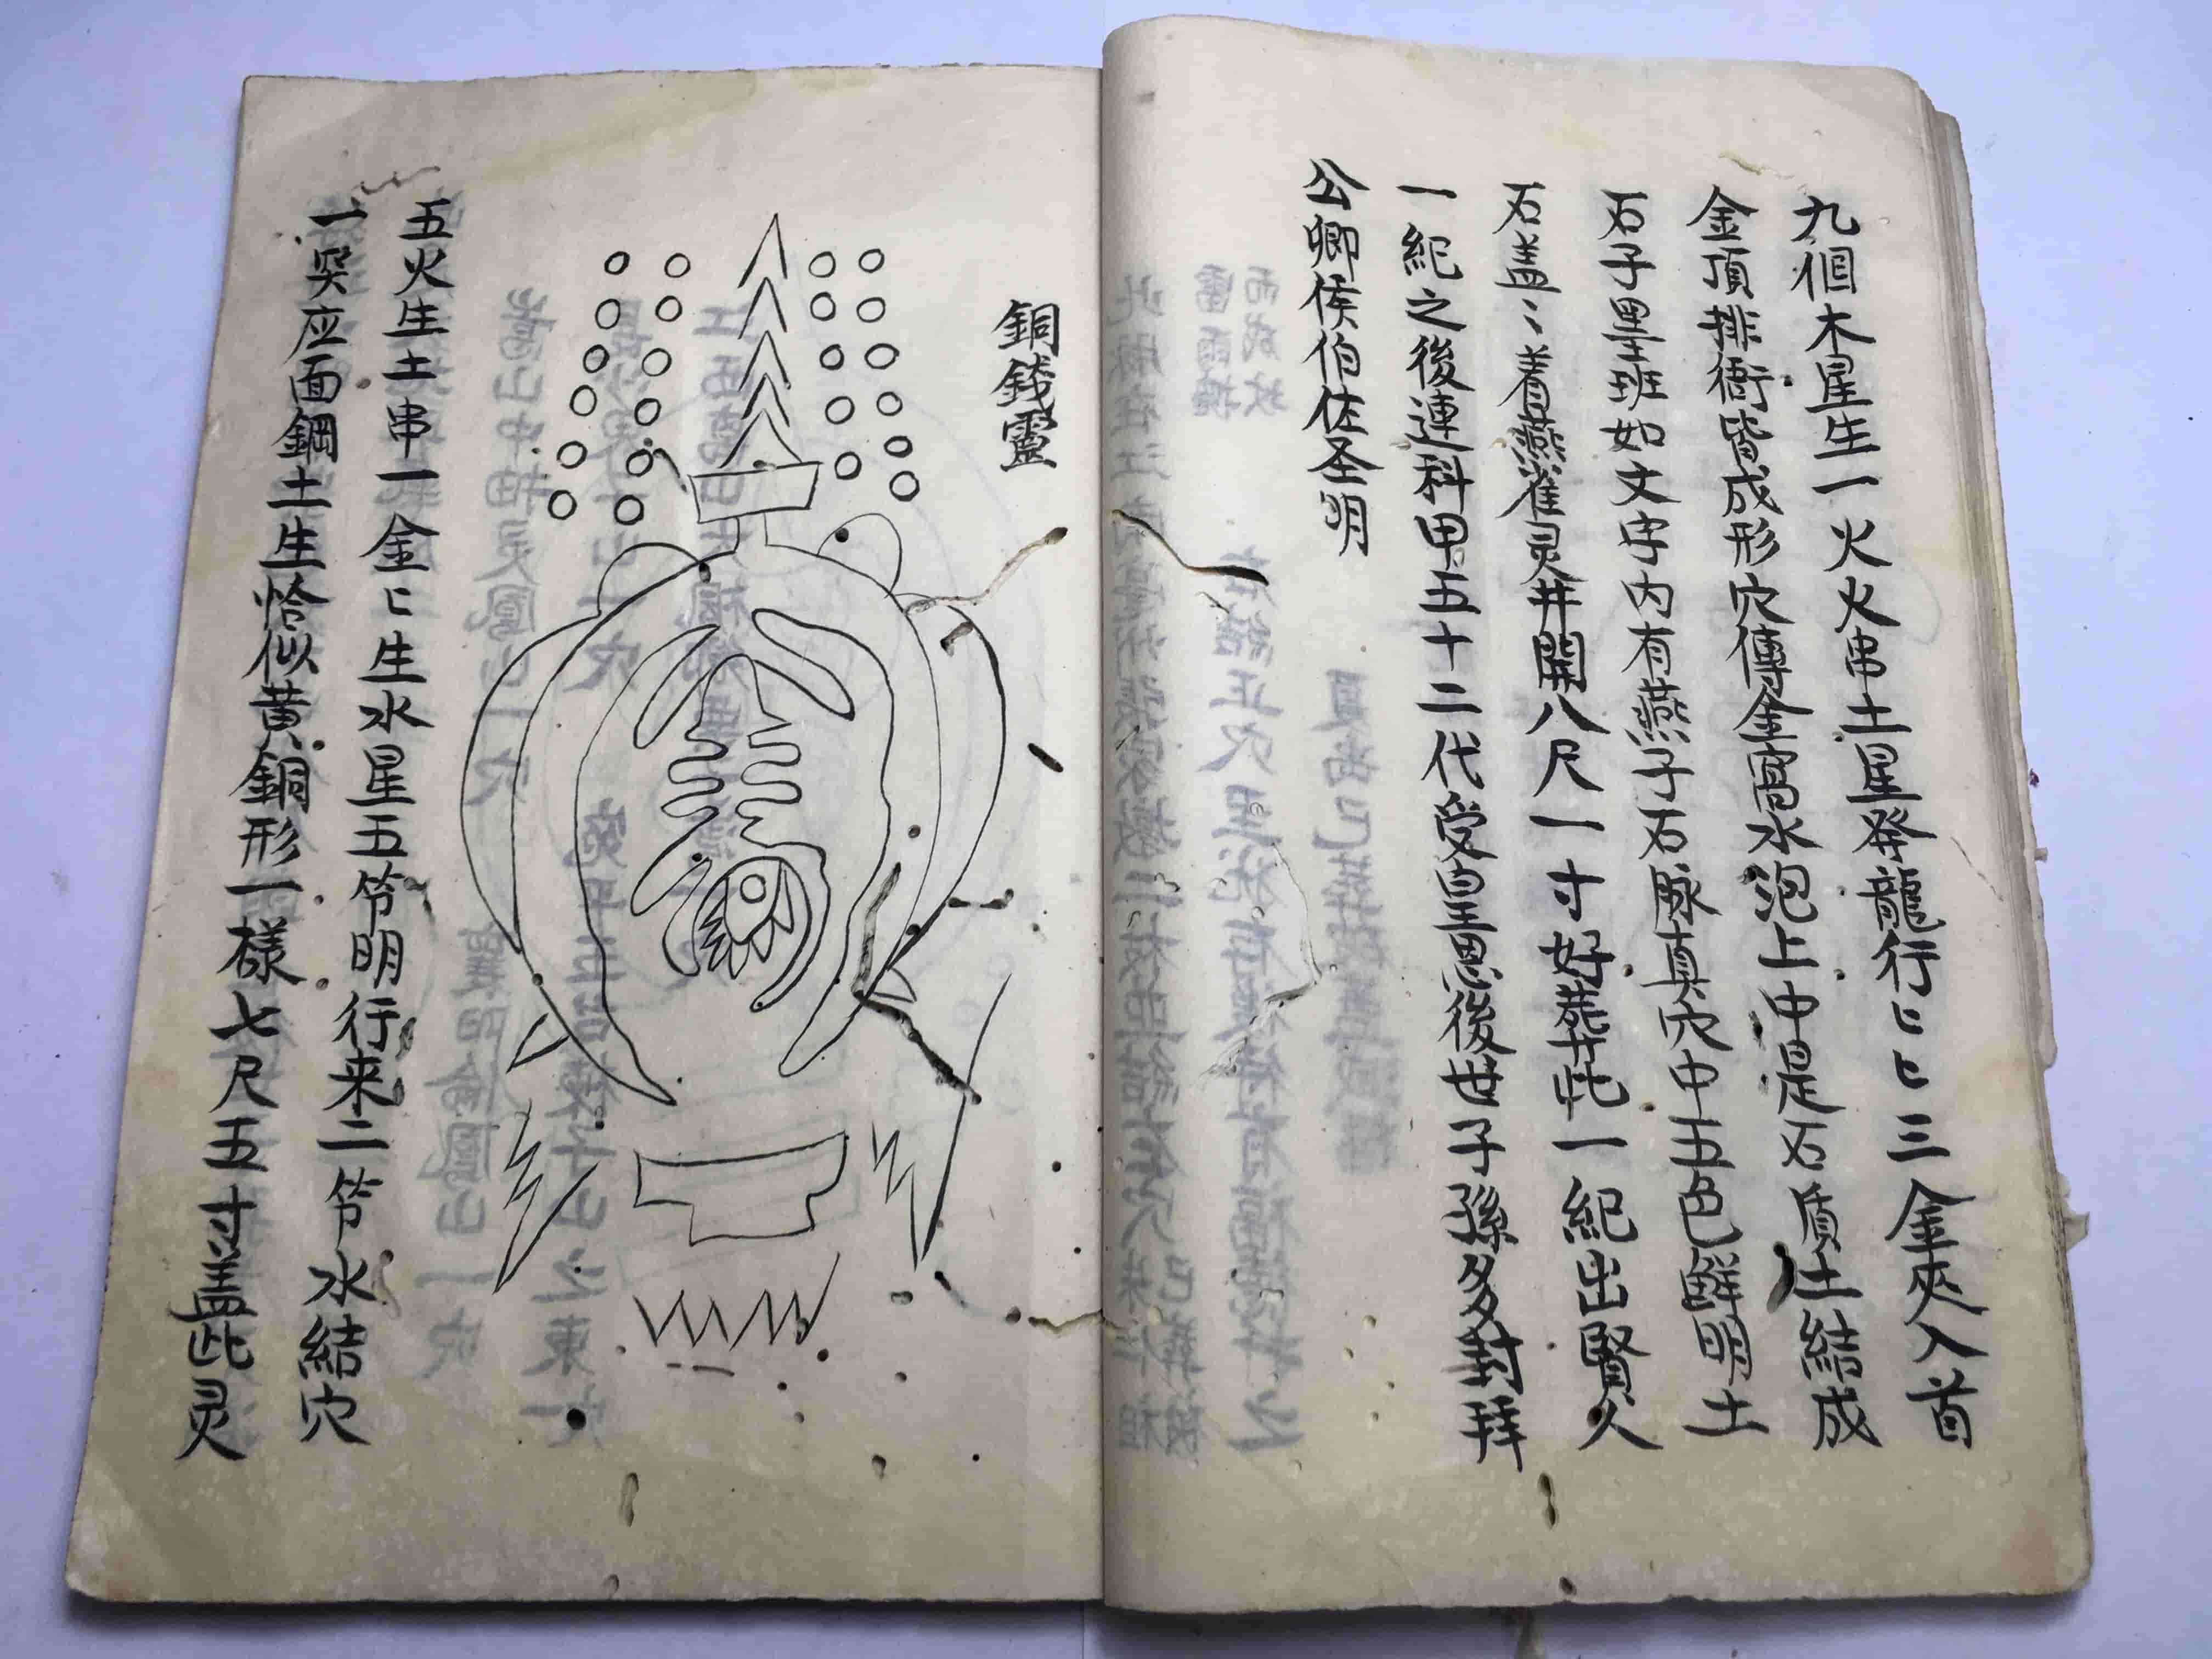 九個木星生一火火串土星發龍行〻〻三金夾入首
金頂排衙皆成形穴傳金窩水泡上中是石質土結成
石子黑斑如文字内有燕子石豚真穴中五色鮮明土
石盖〻着燕雀灵井開八尺一寸好葬此一紀出賢人
一紀之後連科甲五十二代受皇恩後世子孫多封拜
公卿侯伯佐圣明
銅錢靈
五火生土串一金〻生水星五节明行来二节水結穴
一突应面鋼土生恰似黄銅形一樣七尺五寸盖此灵